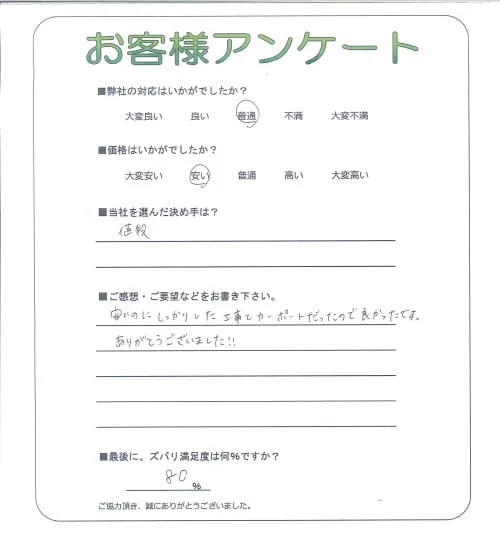 お客様アンケート
■弊社の対応はいかがでしたか？
大変良い 良い 普通 不満 大変不満
■価格はいかがでしたか？
大変安い 安い 普通 高い 大変高い
■当社を選んだ決め手は？
値段
■ご感想・ご要望などをお書き下さい。
安いのにしっかりした工事とカーポートだったので良かったです。
ありがとうございました!!
■最後に、ズバリ満足度は何%ですか？
80%
ご協力頂き、誠にありがとうございました。